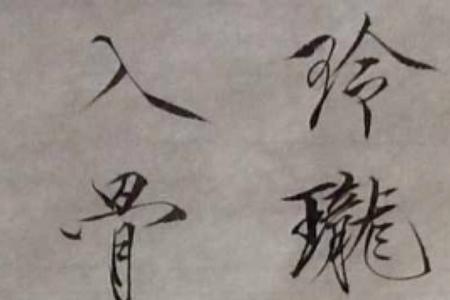 玲瓏
入骨